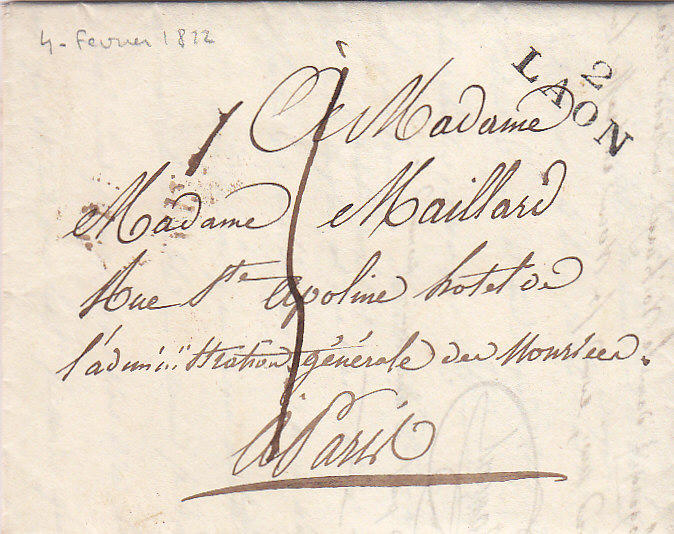 4. Fevrier 1812
2
LAON
A Madame
Madame Maillard
Rue Ste apoline hotel de
l'administration générale des Nourices.
à Paris